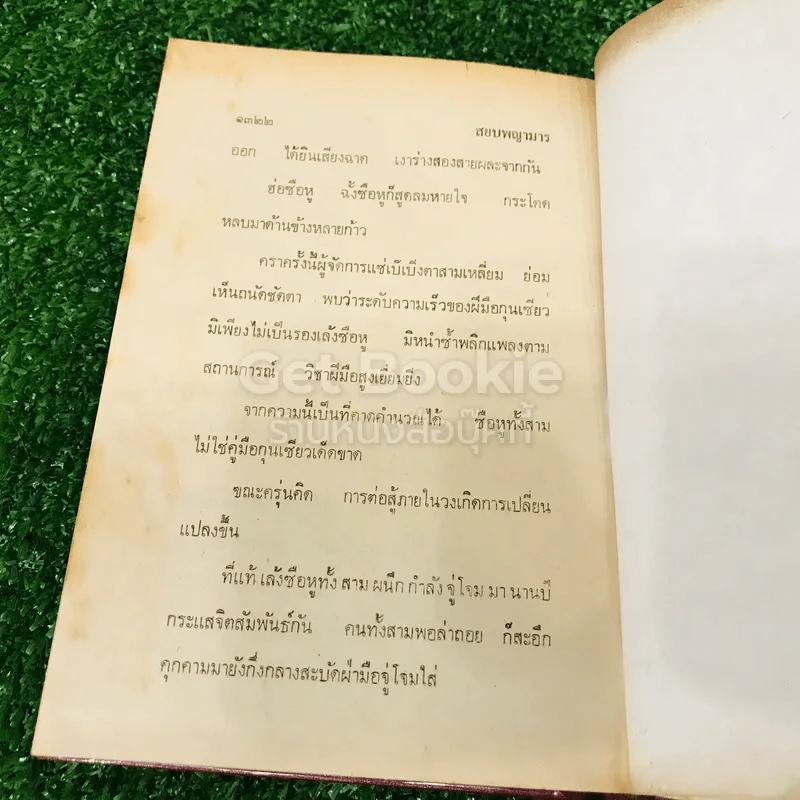 ๑๓๒๒ สยบพญามาร
ออก ได้ยินเสียงฉาด เงาร่างสองสายผละจากกัน
ฮ่อซือหู ฉั้งซือหูก็สูดลมหายใจ กระโดด
หลบมาด้านข้างหลายก้าว
คราครั้งนี้ผู้จัดการแซ่เบ๊เบิ่งตาสามเหลี่ยม ย่อม
เห็นถนัดชัดตา พบว่าระดับความเร็วของฝีมือกุนเซียว
มิเพียงไม่เป็นรองเล้งซือหู มิหนำซ้ำพลิกแพลงตาม
สถานการณ์ วิชาฝีมือสูงเยี่ยมยิ่ง
Get Bookie
จากความนี้เป็นที่คาดคำนวณได้ ซือหูทั้งสาม
ร้านหนังสือบุ๊คกี้
ไม่ใช่คู่มือกุนเซียวเด็ดขาด
ขณะครุ่นคิด การต่อสู้ภายในวงเกิดการเปลี่ยน
แปลงขึ้น
ที่แท้ เล้งซือหูทั้ง สาม ผนึก กำลัง จู่โจม มา นานปี
กระแสจิตสัมพันธ์กัน คนทั้งสามพอล่าถอย ก็สะอึก
คุกคามมายังกึ่งกลางสะบัดฝ่ามือจู่โจมใส่